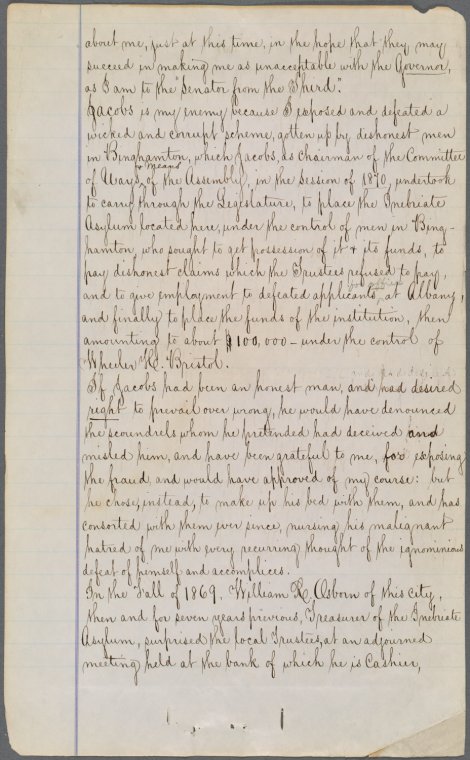 about me, just at this time, in the hope that they may
succeed in making me as unacceptable with the Governor,
as I am to the "Senator from the Third".
Jacobs is my enemy because I exposed and defeated a
wicked and corrupt scheme, gotten up by dishonest men
in Binghamton, which Jacobs, as chairman of the Committee
of Ways & Means of the Assembly, in the session of 1870, undertook
to carry through the Legislature, to place the Inebriate
Asylum located here, under the control of men in Bing-
hamton, who sought to get possession of it & its funds, to
pay dishonest claims which the Trustees refused to pay,
and to give employment to defeated applicants for office at Albany,
and finally to place the funds of the institution, then
amounting to about $100,000 - under the control of
Wheeler H. Bristol.
If Jacobs had been an honest man, and had desired
right to prevail over wrong, he would have denounced
the scoundrels whom he pretended had deceived and
misled him, and have been grateful to me, for exposing
the fraud, and would have approved of my course: but
he chose, instead, to make up his bed with them, and has
consorted with them ever since, nursing his malignant
hatred of me with every recurring thought of the ignominious
defeat of himself and accomplices.
In the Fall of 1869, William R. Osborn of this city,
then and for seven years previous, Treasurer of the Inebriate
Asylum, surprised the local Trustees, at an adjourned
meeting held at the bank of which he is Cashier,